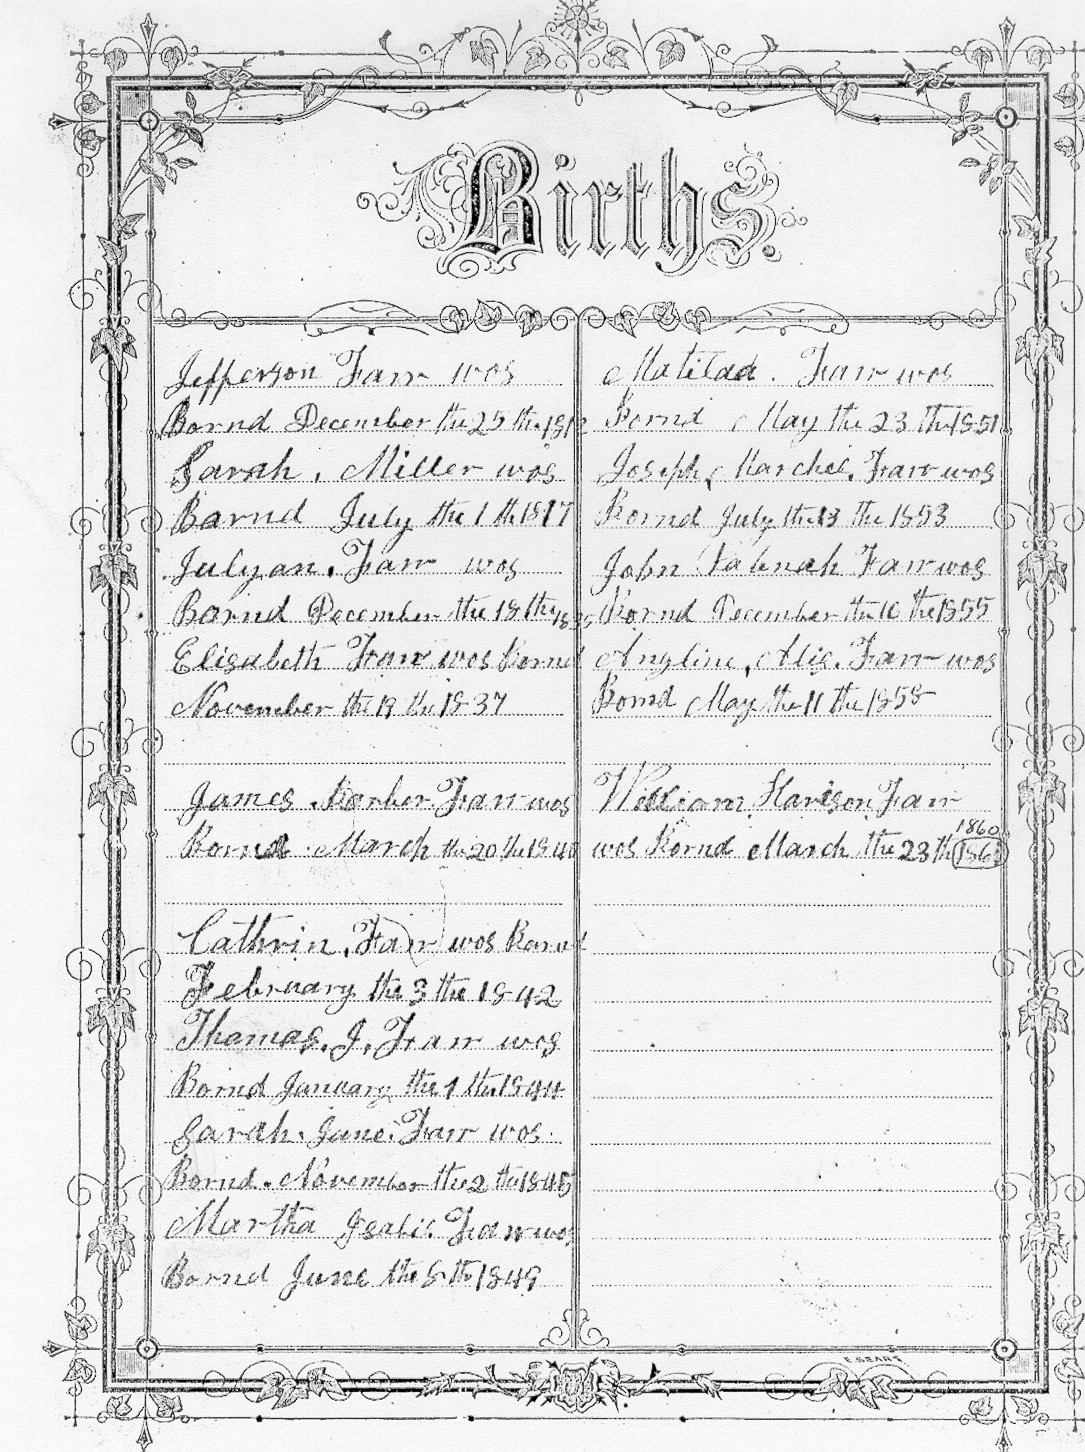 Births.
Jefferson Farr wos
Barnd December the 25 the 1812
Sarah. Miller wos
Barnd July the 1 th 1817
Julyan. Farr wos
Barnd December the 18 the 1835
Elisabeth Farr wos Bornd
November the 19 the 1837
James Farr wos
Bornd March the 20 the 1840
Cathrin. Farr wos Barnd
February the 3 the 1842
Thomas. J. Farr wos
Bornd January the 1 the 1844
Sarah. Jane. Farr wos.
Bornd. November the 2 the 1845
Martha Isabic Farr wos
Barnd June the 8 th 1849
Matildad. Farr wos
Bornd May the 23 the 1851
Joseph Farr wos
Bornd July the 13 the 1853
John Farr wos
Bornd December the 16 the 1855
Angline, Alis. Farr wos
Bornd May the 11 the 1858
William Harison Farr
1860
wos Bornd March the 23 th
E. SEARS.